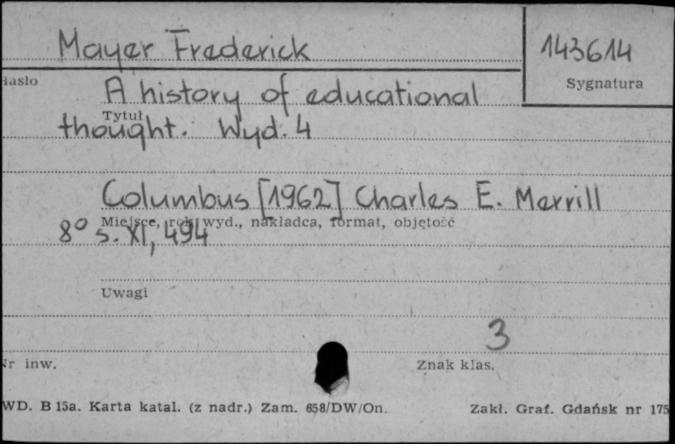 Mayer Frederick 143614
Hasło Sygnatura
A history of educational
Tytuł
thought. Wyd. 4
Columbus [1962] Charles E. Merrill
Miejsce, rok wyd., nakładca, format, objętość
8° s. XI, 494
Uwagi
3
Nr inw. Znak klas.
WD. B 15a. Karta katal. (z nadr.) Zam. 658/DW/On. Zakł. Graf. Gdańsk nr 175